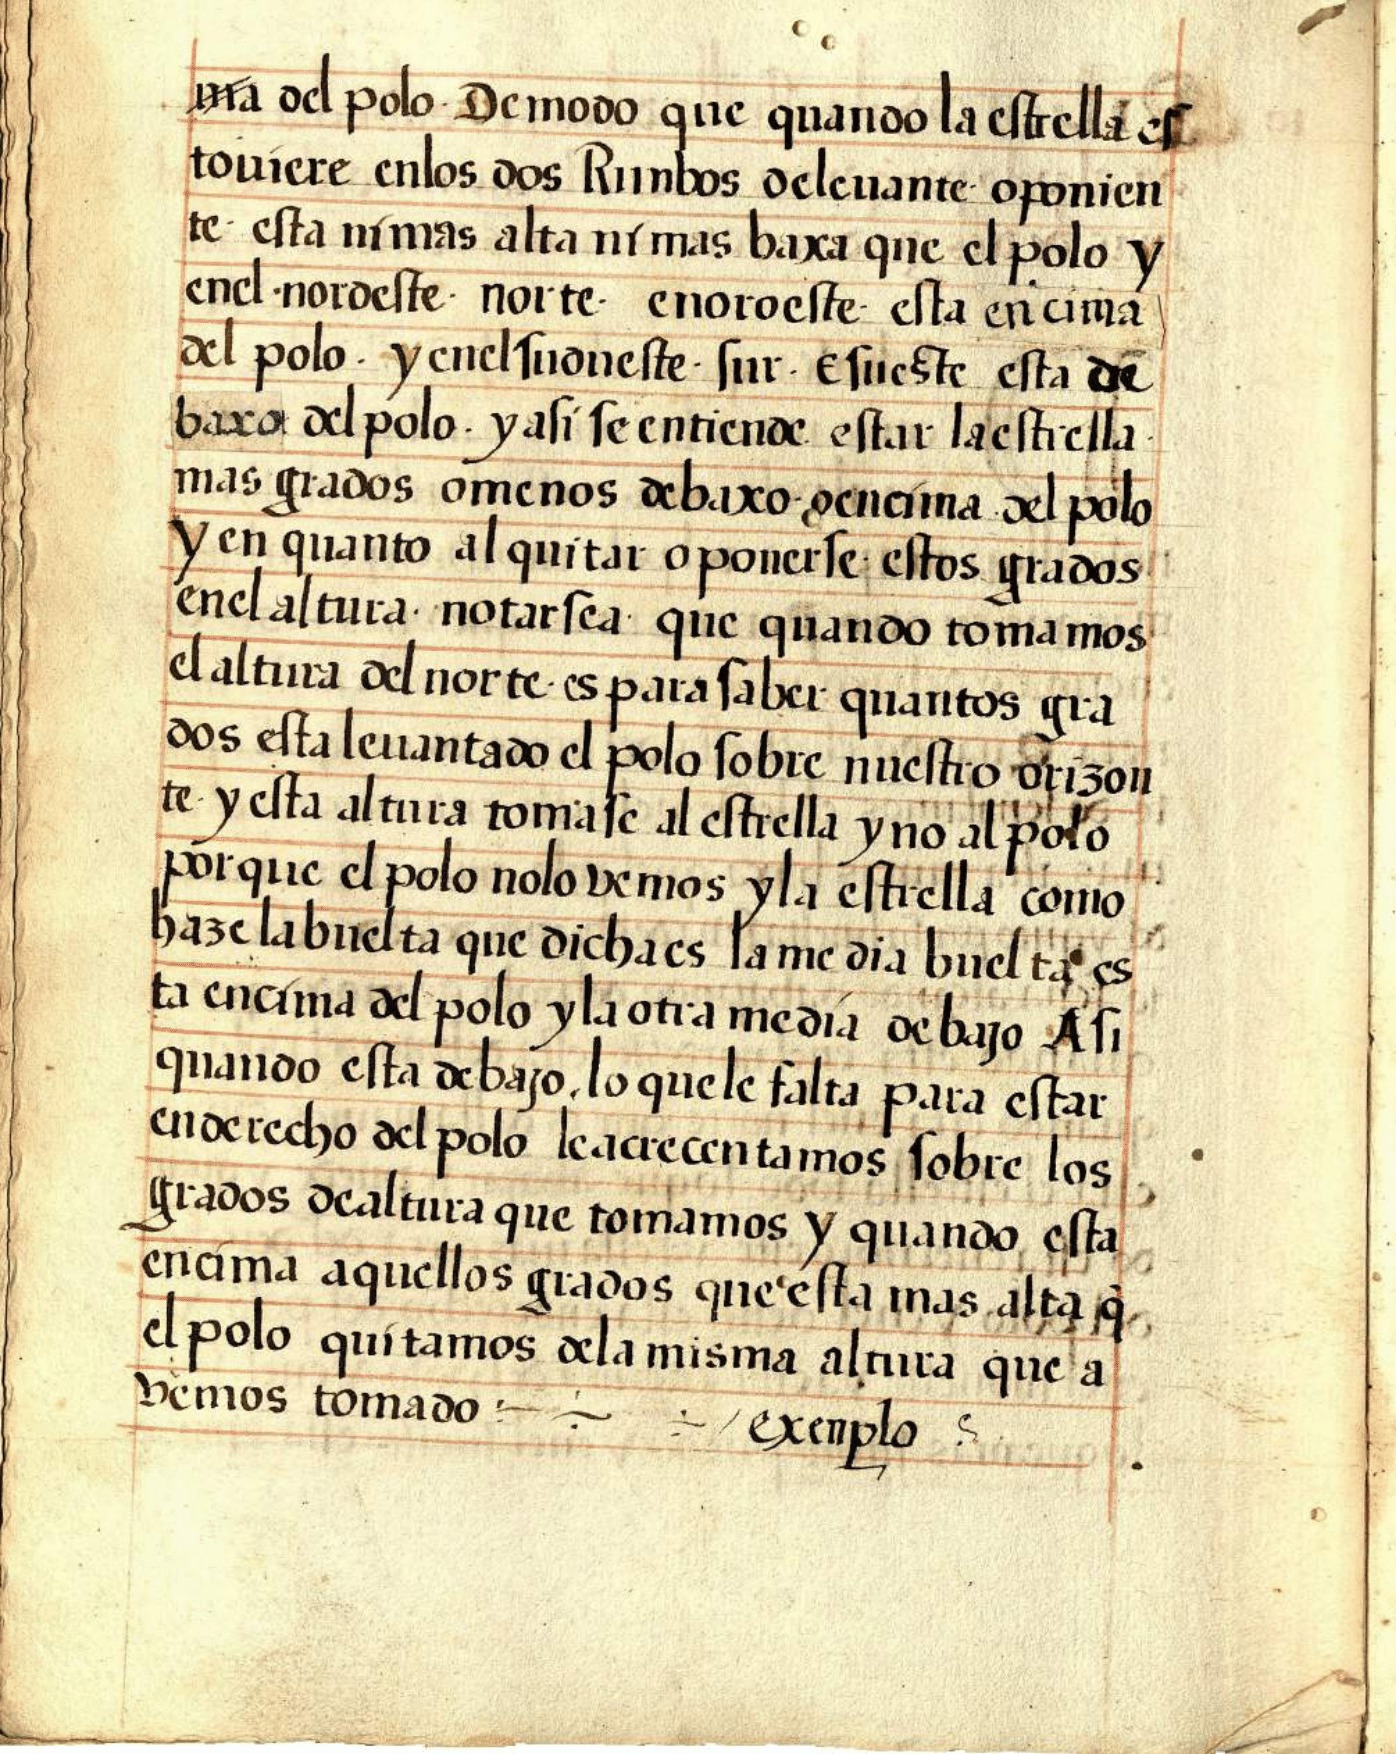 ma del polo. De modo que quando la estrella es
toviere enlos dos Runbos deleuante oponien
te. esta ni mas alta ni mas baxa que el polo y
enel nordeste. norte. enoroeste. esta encima
del polo. y enel sudueste. sur. Esueste esta de
baxo del polo. y asi se entiende estar la estrella.
mas grados omenos debaxo. oencima del polo
y en quanto al quitar oponerse estos grados
enel altura. notarsea. que quando tomamos
el altura del norte. es para saber quantos gra
dos esta leuantado el polo sobre nuestro orizon
te. y esta altura tomase al estrella y no al polo
por que el polo nolo vemos y la estrella como
haze la buelta que dicha es la media buelta es
ta encima del polo y la otra media debajo Asi
quando esta debajo. lo que le falta para estar
enderecho del polo le acrecentamos sobre los
grados de altura que tomamos y quando esta
encima aquellos grados que esta mas alta q̃
el polo quitamos dela misma altura que a
vemos tomado exenplo